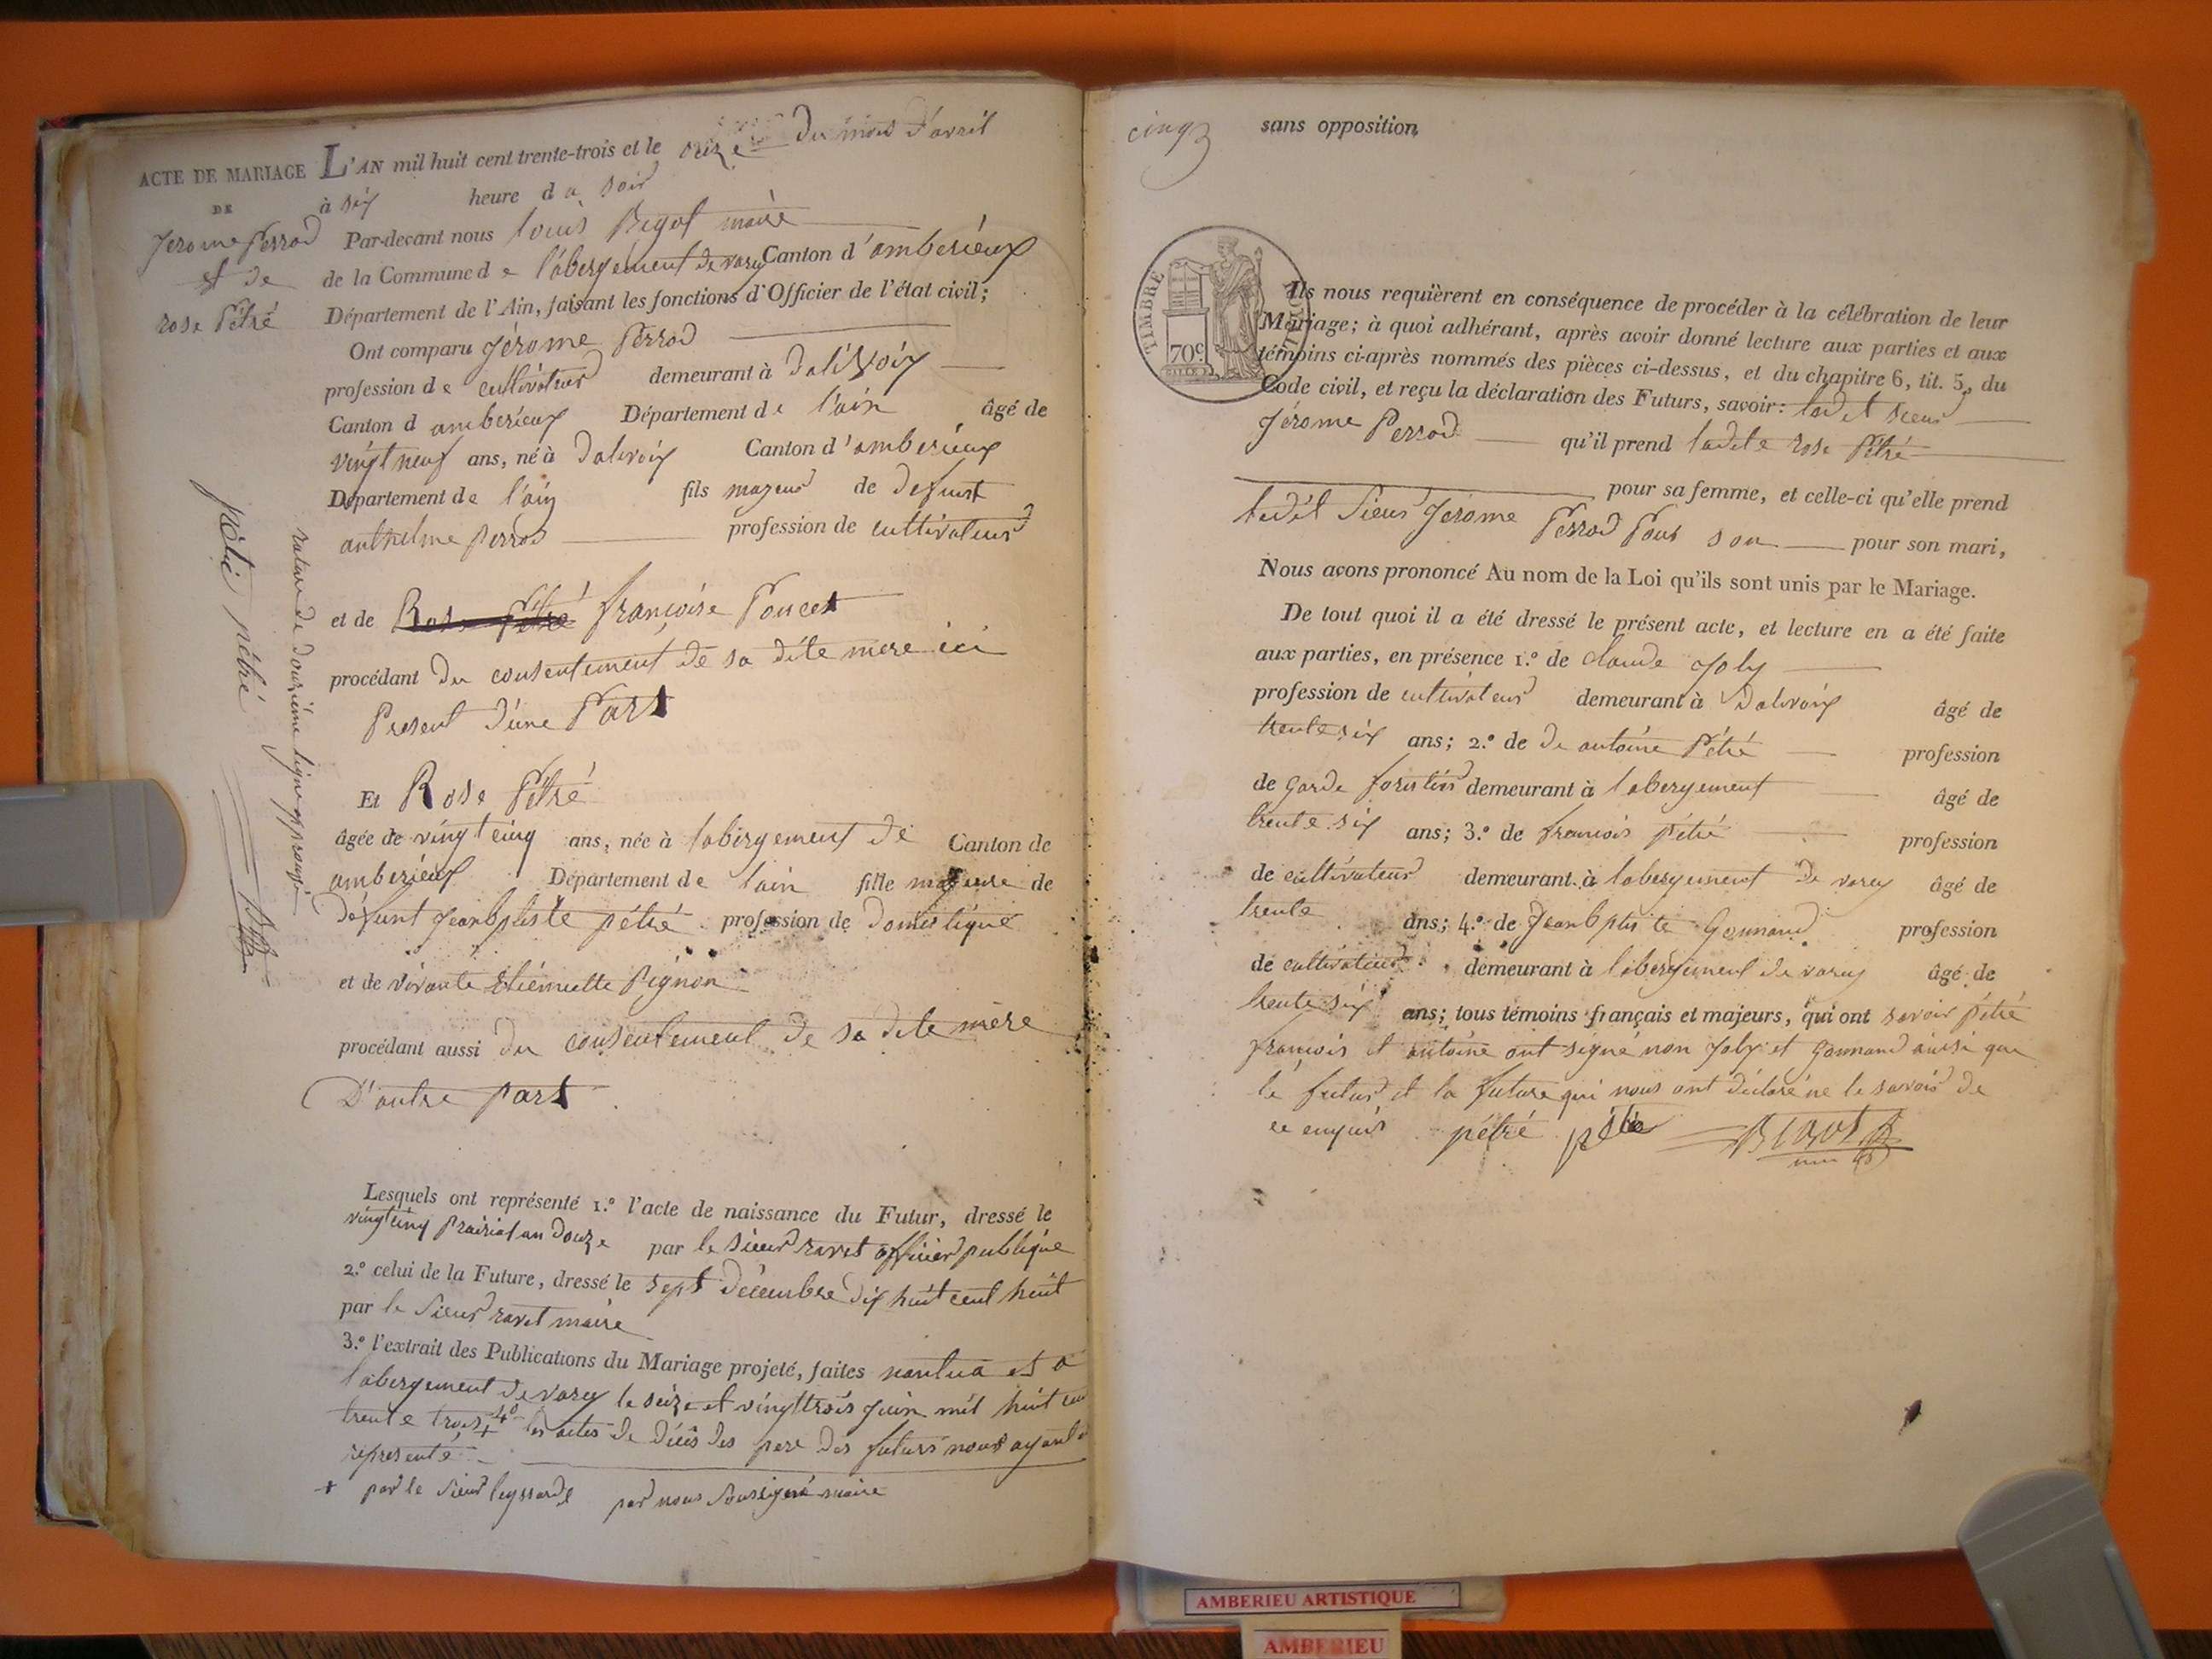 ACTE DE MARIAGE
DE
Jerome Perrod
et de
rose Pétré
L'AN mil huit cent trente-trois et le onze du mois d'avril
à six heure du soir
Par-devant nous louis Bigot maire
de la Commune de l'abergement de varey Canton d'amberieux
Département de l'Ain, faisant les fonctions d'Officier de l'état civil;
Ont comparu Jérome Perrod
profession de cultivateur demeurant à Dalivoix
Canton d amberieux Département de l'ain âgé de
vingt neuf ans, né à Dalivoix Canton d'amberieux
Département de l'ain fils majeur de defunt
anthelme perrod profession de cultivateur
et de Rose Pétré françoise Poncet
procédant du consentement de sa dite mere ici
Present d'une Part
Et Rose Pétré
âgée de vingt cinq ans, née à l'abergement de Canton de
amberieux Département de l'ain fille majeure de
défunt Jean bptiste pétré profession de domestique
et de vivante Etiennette Pignon
procédant aussi du consentement de sa dite mère
D'autre part
Lesquels ont représenté 1.º l'acte de naissance du Futur, dressé le
vingt cinq prairial an douze par le sieur ravet officier publique
2.º celui de la Future, dressé le sept décembre dix huit cent huit
par le sieur ravet maire
3.º l'extrait des Publications du Mariage projeté, faites nantua et a
l'abergement de varey le seize et vingt trois juin mil huit cent
trente trois + 4º les actes de décès des pere des futurs nous ayant
représenté
+ par le sieur par nous soussigné maire
rature de douzième ligne approuvé
pétré pétré
cinq
sans opposition
TIMBRE
70c
Ils nous requièrent en conséquence de procéder à la célébration de leur
Mariage; à quoi adhérant, après avoir donné lecture aux parties et aux
témoins ci-après nommés des pièces ci-dessus, et du chapitre 6, tit. 5, du
Code civil, et reçu la déclaration des Futurs, savoir: ledit sieur
Jérome Perrod qu'il prend ladite rose Pétré
pour sa femme, et celle-ci qu'elle prend
ledit sieur Jerome Perrod Pour son pour son mari,
Nous avons prononcé Au nom de la Loi qu'ils sont unis par le Mariage.
De tout quoi il a été dressé le présent acte, et lecture en a été faite
aux parties, en présence 1.º de claude Joly
profession de cultivateur demeurant à Dalivoix âgé de
trente six ans; 2.º de de antoine Pétré profession
de garde forestier demeurant à l'abergement âgé de
trente six ans; 3.º de francois pétré profession
de cultivateur demeurant à l'abergement de varey âgé de
trente ans; 4.º de Jean bptiste Gonnand profession
de cultivateur demeurant à l'abergement de varey âgé de
trente six ans; tous témoins français et majeurs, qui ont savoir pétré
francois et antoine ont signé non Joly et Gonnand ainsi que
le futur et la future qui nous ont déclaré ne le savoir de
ce enquis pétré pétré BIGOT
AMBERIEU ARTISTIQUE
AMBERIEU